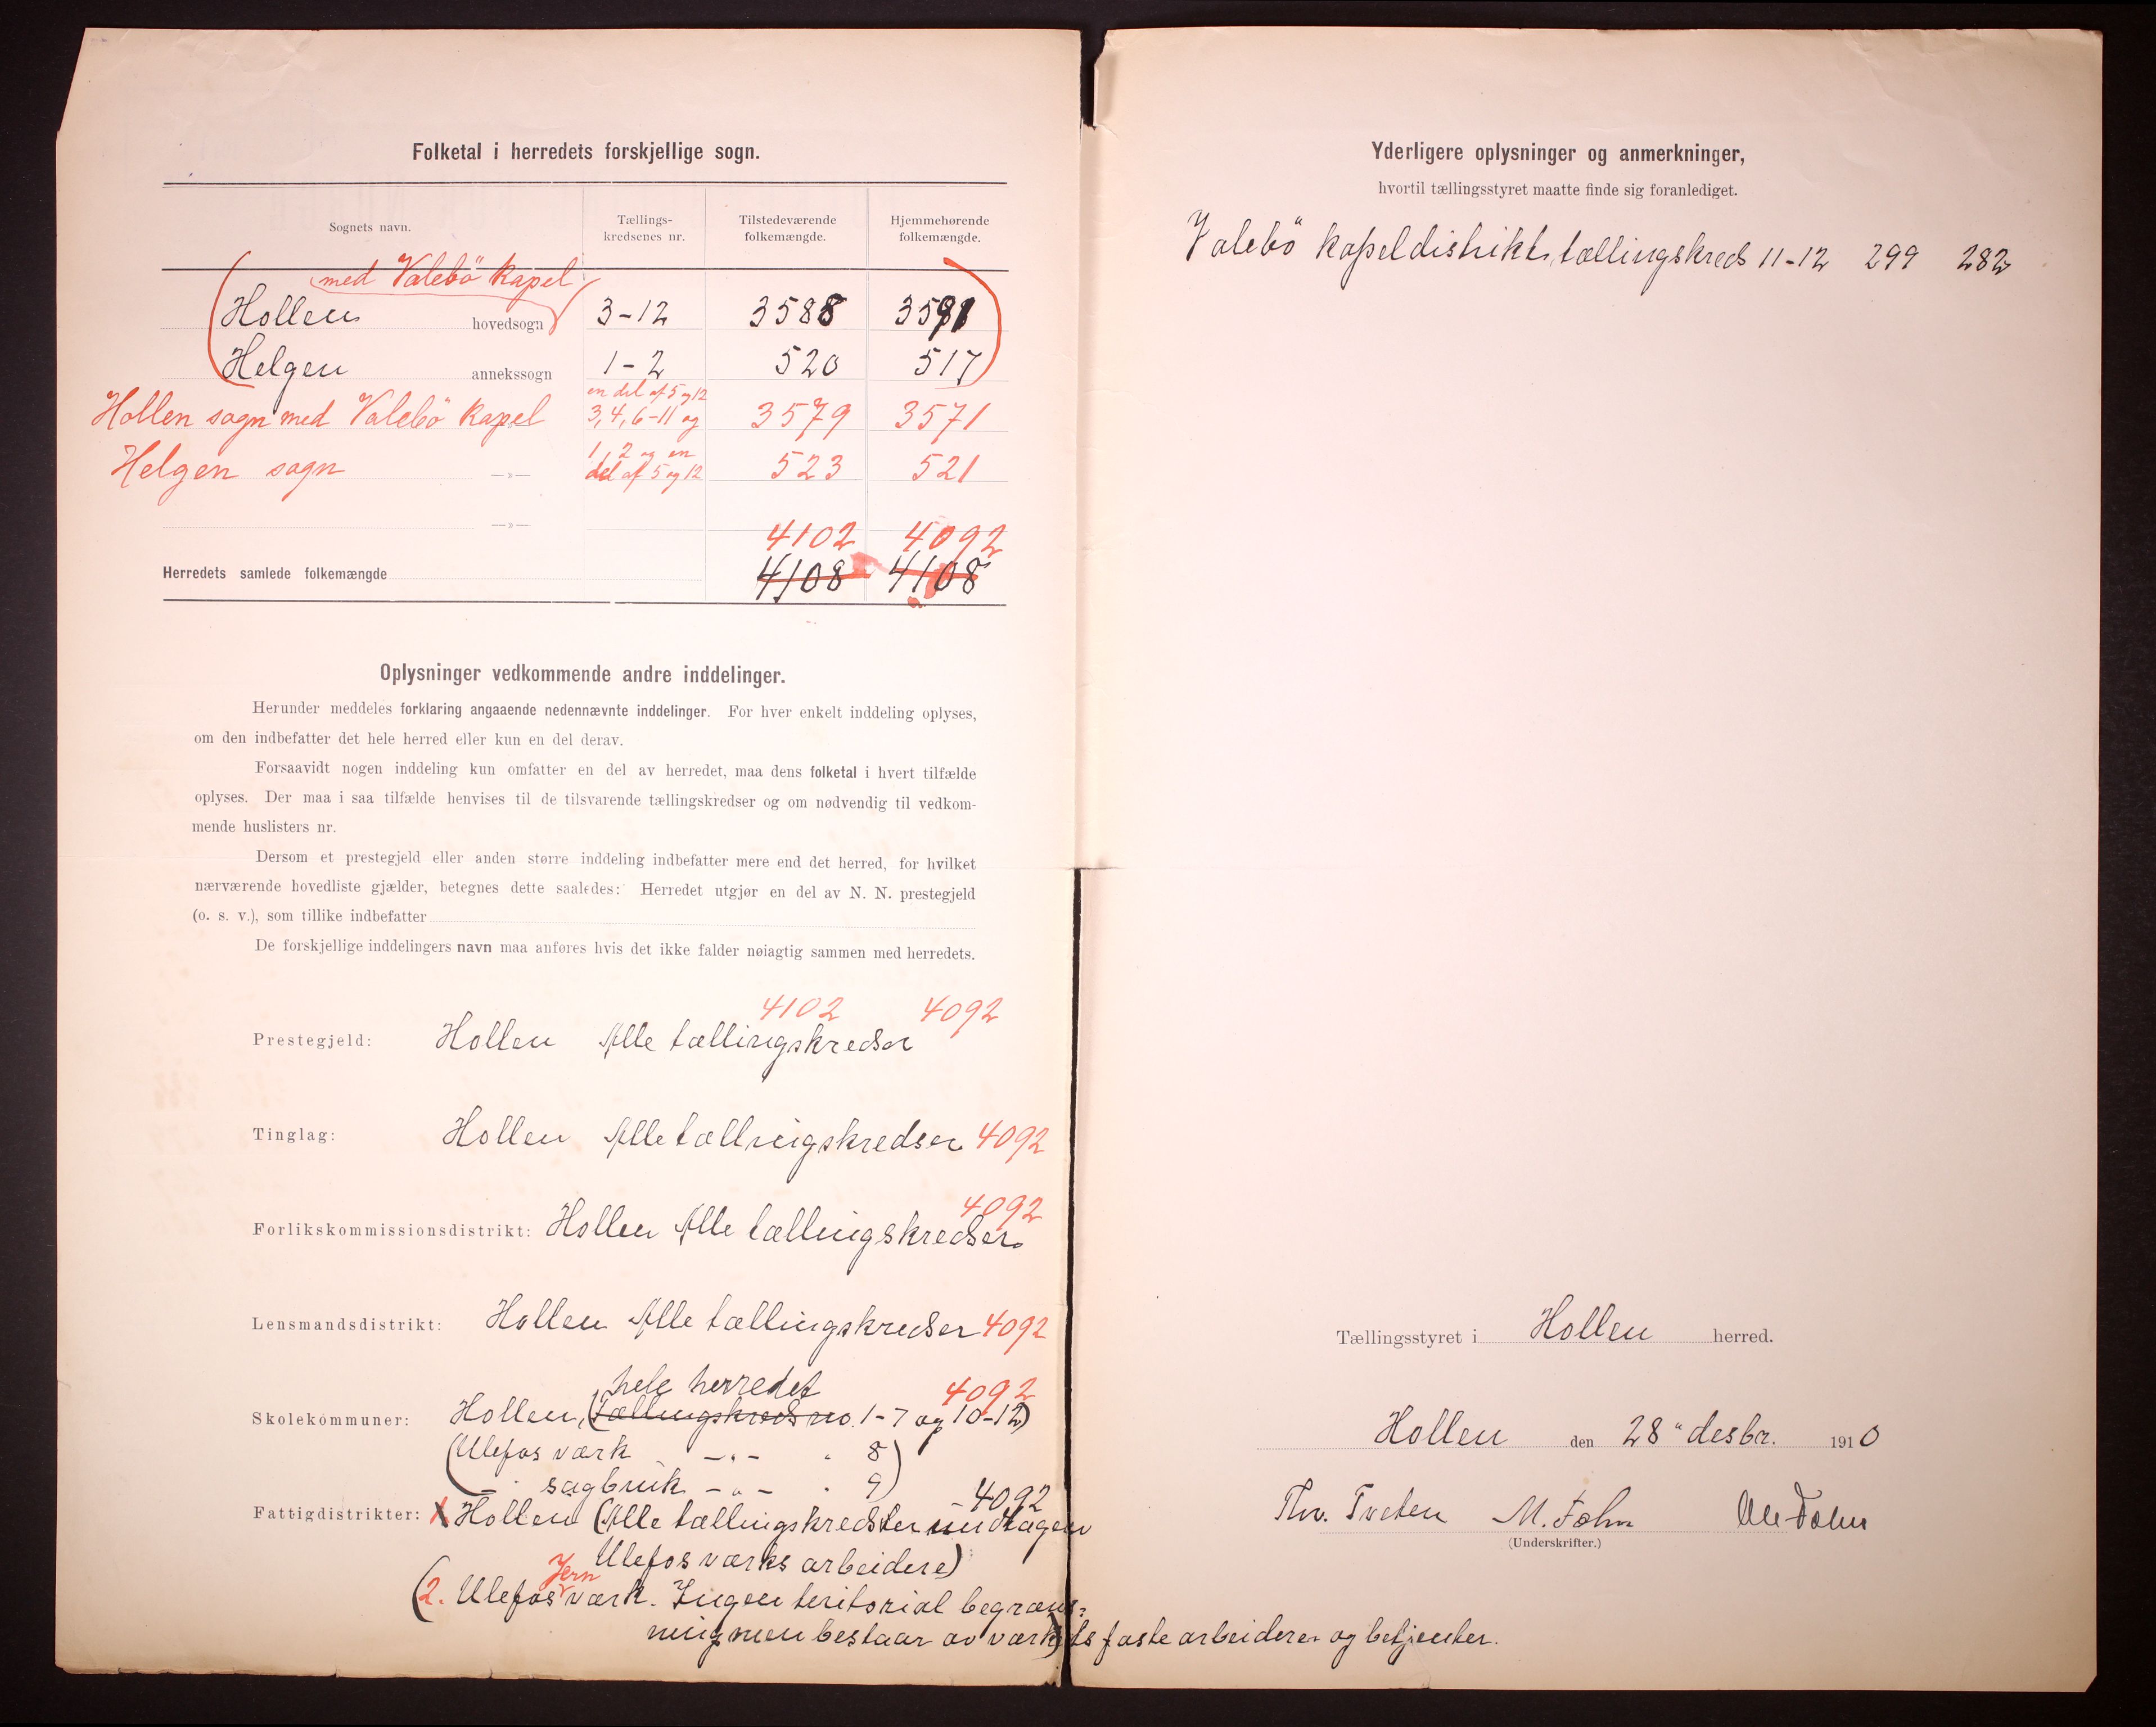 Folketal i herredets forskjellige sogn.
Sognets navn.
Tællings-
kredsenes nr.
Tilstedeværende
folkemængde.
Hjemmehørende
folkemængde.
med Valebö Kapel
Hollen hovedsogn 3-12 3588 3591
Helgen annekssogn 1-2 520 517
en del af 5 og 12
Hollen sogn med Valebö Kapel 3, 4, 6-11 og 3579 3571
1, 2 og en
Helgen sogn —»— del af 5 og 12 523 521
—»—
4102 4092
Herredets samlede folkemængde 4108 4108
Oplysninger vedkommende andre inddelinger.
Herunder meddeles forklaring angaaende nedennævnte inddelinger. For hver enkelt inddeling oplyses,
om den indbefatter det hele herred eller kun en del derav.
Forsaavidt nogen inddeling kun omfatter en del av herredet, maa dens folketal i hvert tilfælde
oplyses. Der maa i saa tilfælde henvises til de tilsvarende tællingskredser og om nødvendig til vedkom-
mende huslisters nr.
Dersom et prestegjeld eller anden større inddeling indbefatter mere end det herred, for hvilket
nærværende hovedliste gjælder, betegnes dette saaledes: Herredet utgjør en del av N. N. prestegjeld
(o. s. v.), som tillike indbefatter
De forskjellige inddelingers navn maa anføres hvis det ikke falder nøiagtig sammen med herredets.
4102 4092
Prestegjeld: Hollen Alle tællingskredser
Tinglag: Hollen Alle tællingskredser 4092
4092
Forlikskommissionsdistrikt: Hollen Alle tællingskredser.
Lensmandsdistrikt: Hollen Alle tællingskredser 4092
hele herredet 4092
Skolekommuner: Hollen, (Tællingskreds no. 1-7 og 10-12)
(Ulefos værk —„— " 8)
— " sagbruk —„— " 9)
- 4092
Fattigdistrikter: 1 Hollen (Alle tællingskredser undtagen
Ulefos værks arbeidere)
Jern
(2. Ulefos værk. Ingen teritorial begræns-
ning men bestaar av værkets faste arbeidere og betjenter.
Yderligere oplysninger og anmerkninger,
hvortil tællingsstyret maatte finde sig foranlediget.
Valebö kapeldistrikt, tællingskreds 11-12 299 282
Tællingsstyret i Hollen herred.
Hollen den 28" desbr. 1910
Thv. Tveten M. Folm Ole Folm
(Underskrifter.)